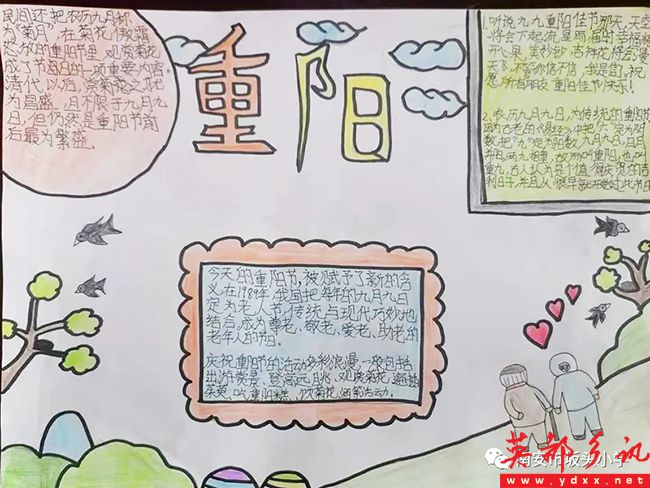 民间还把农历九月称
为"菊月",在菊花傲霜
怒放的重阳节里,观赏菊花
成了节日的一项重要内容。
清代以后,赏菊花之习尤
为昌盛,且不限于九月九
日,但仍然是重阳节前
后最为繁盛。
重阳
1.听说九九重阳佳节那天,天空
将会下起流星雨,届时幸福将
开心果 美妙纱 吉祥花 将会漫
天飞,不管你信不信,我是信。祝
愿所有朋友 重阳佳节快乐!
2.农历九月九日,为传统的重阳节
因为古老的《易经》中把"六"定为阴
数,把"九"定为阳数,九月九日,日月
并阳,两九相重,故而叫重阳,也叫
重九,古人认为是个值得庆贺的吉
利日子,并且从很早就开始过此节日
今天的重阳节,被赋予了新的含
义,在1989年,我国把每年的九月九日
定为老人节,传统与现代巧妙地
结合,成为尊老、敬老、爱老、助老的
老年人的节日。
庆祝重阳节的活动多彩浪漫,一般包括
出游赏景、登高远眺、观赏菊花、遍插
茱萸、吃重阳糕、饮菊花酒等活动。
南安市坂头小学
英都乡讯
www.ydxx.net